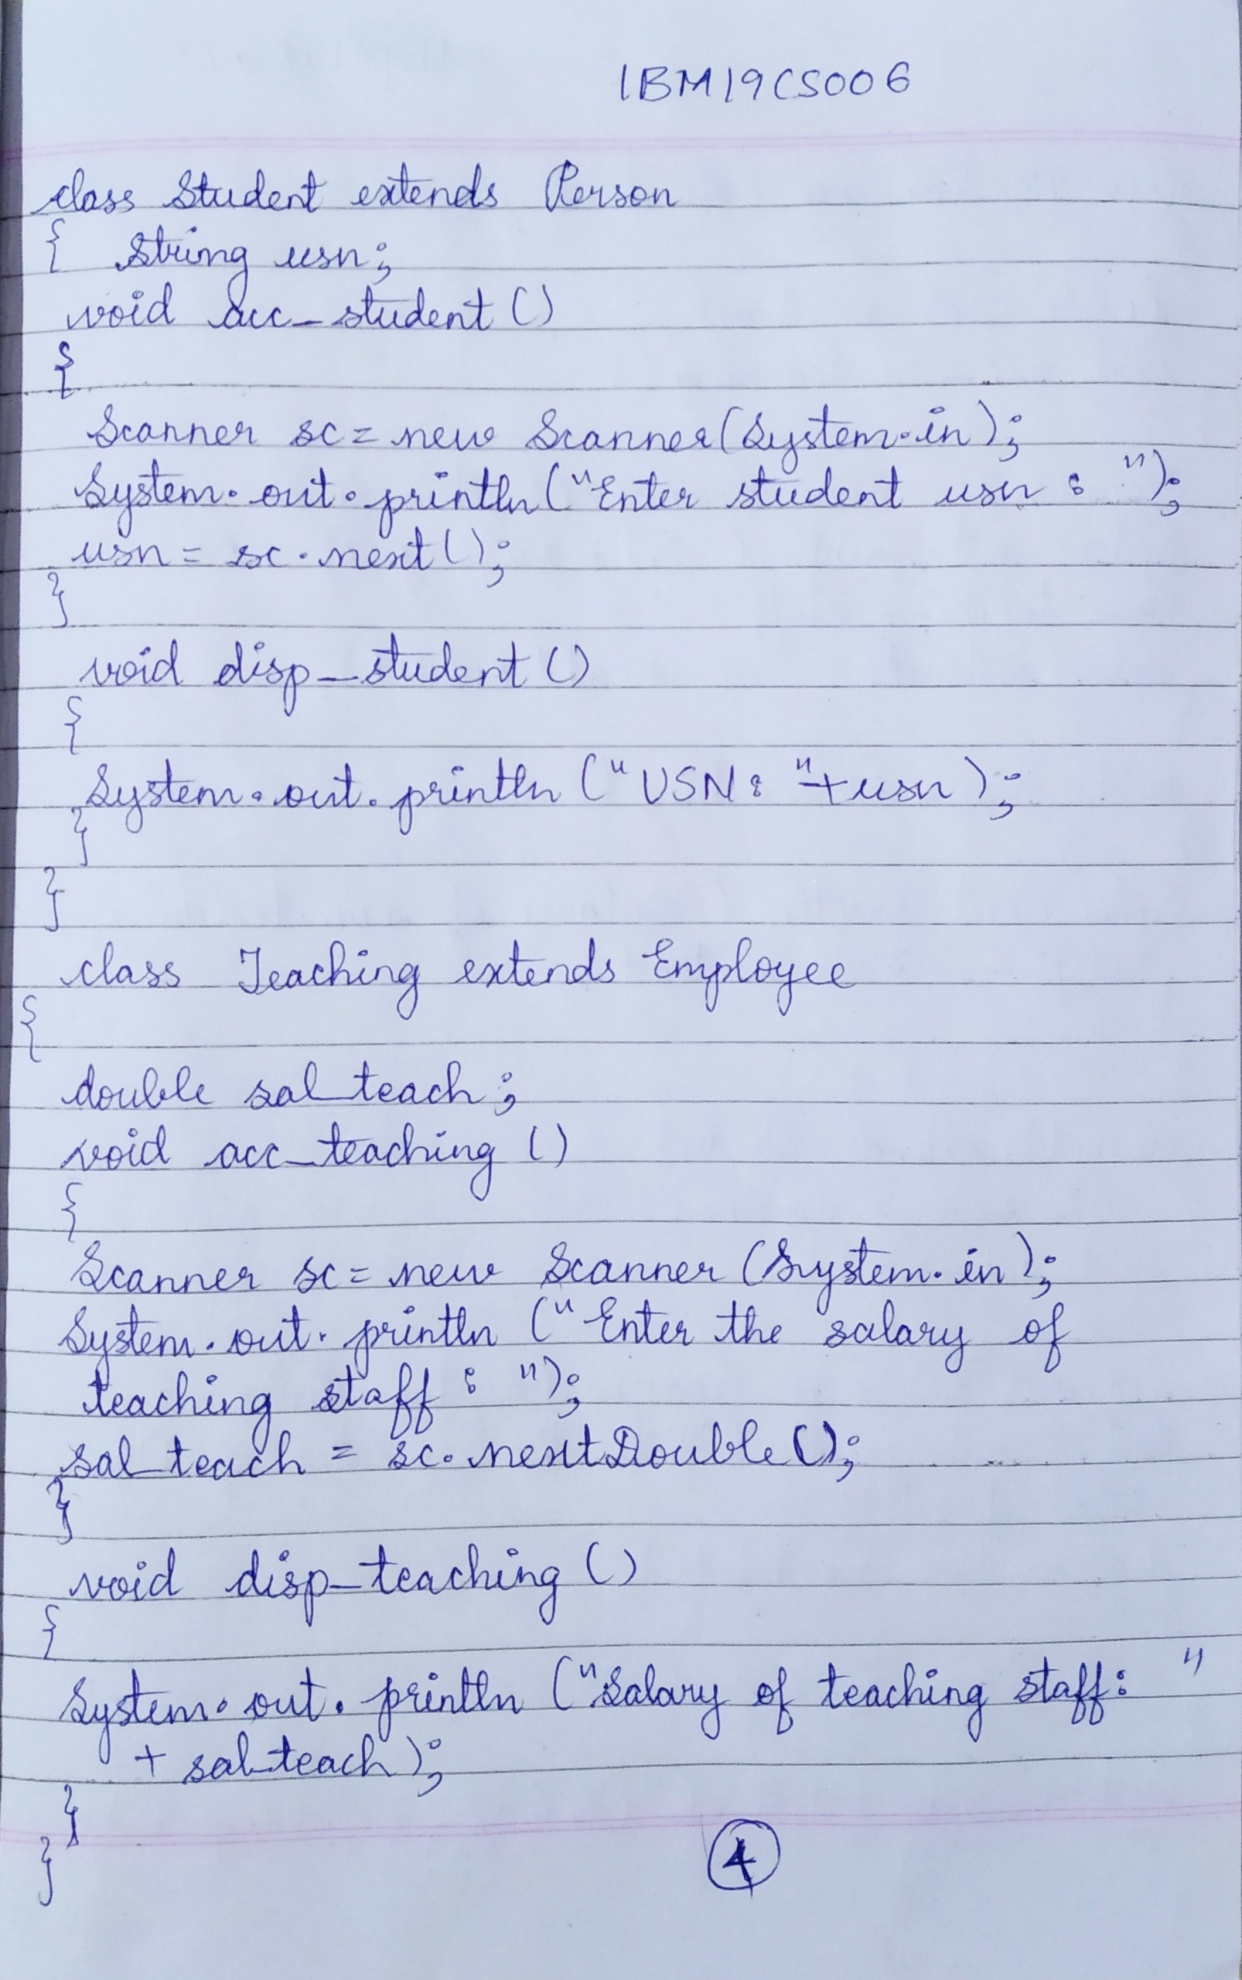 1BM19CS006
class Student extends Person
{ String usn;
void acc_student()
{
Scanner sc = new Scanner(System.in);
System.out.println("Enter student usn : ");
usn = sc.next();
}
void disp_student()
{
System.out.println("USN: "+usn);
}
}
class Teaching extends Employee
{
double sal_teach;
void acc_teaching()
{
Scanner sc = new Scanner(System.in);
System.out.println("Enter the salary of
teaching staff : ");
sal_teach = sc.nextDouble();
}
void disp_teaching()
{
System.out.println("Salary of teaching staff: "
+ sal_teach);
}
}
4